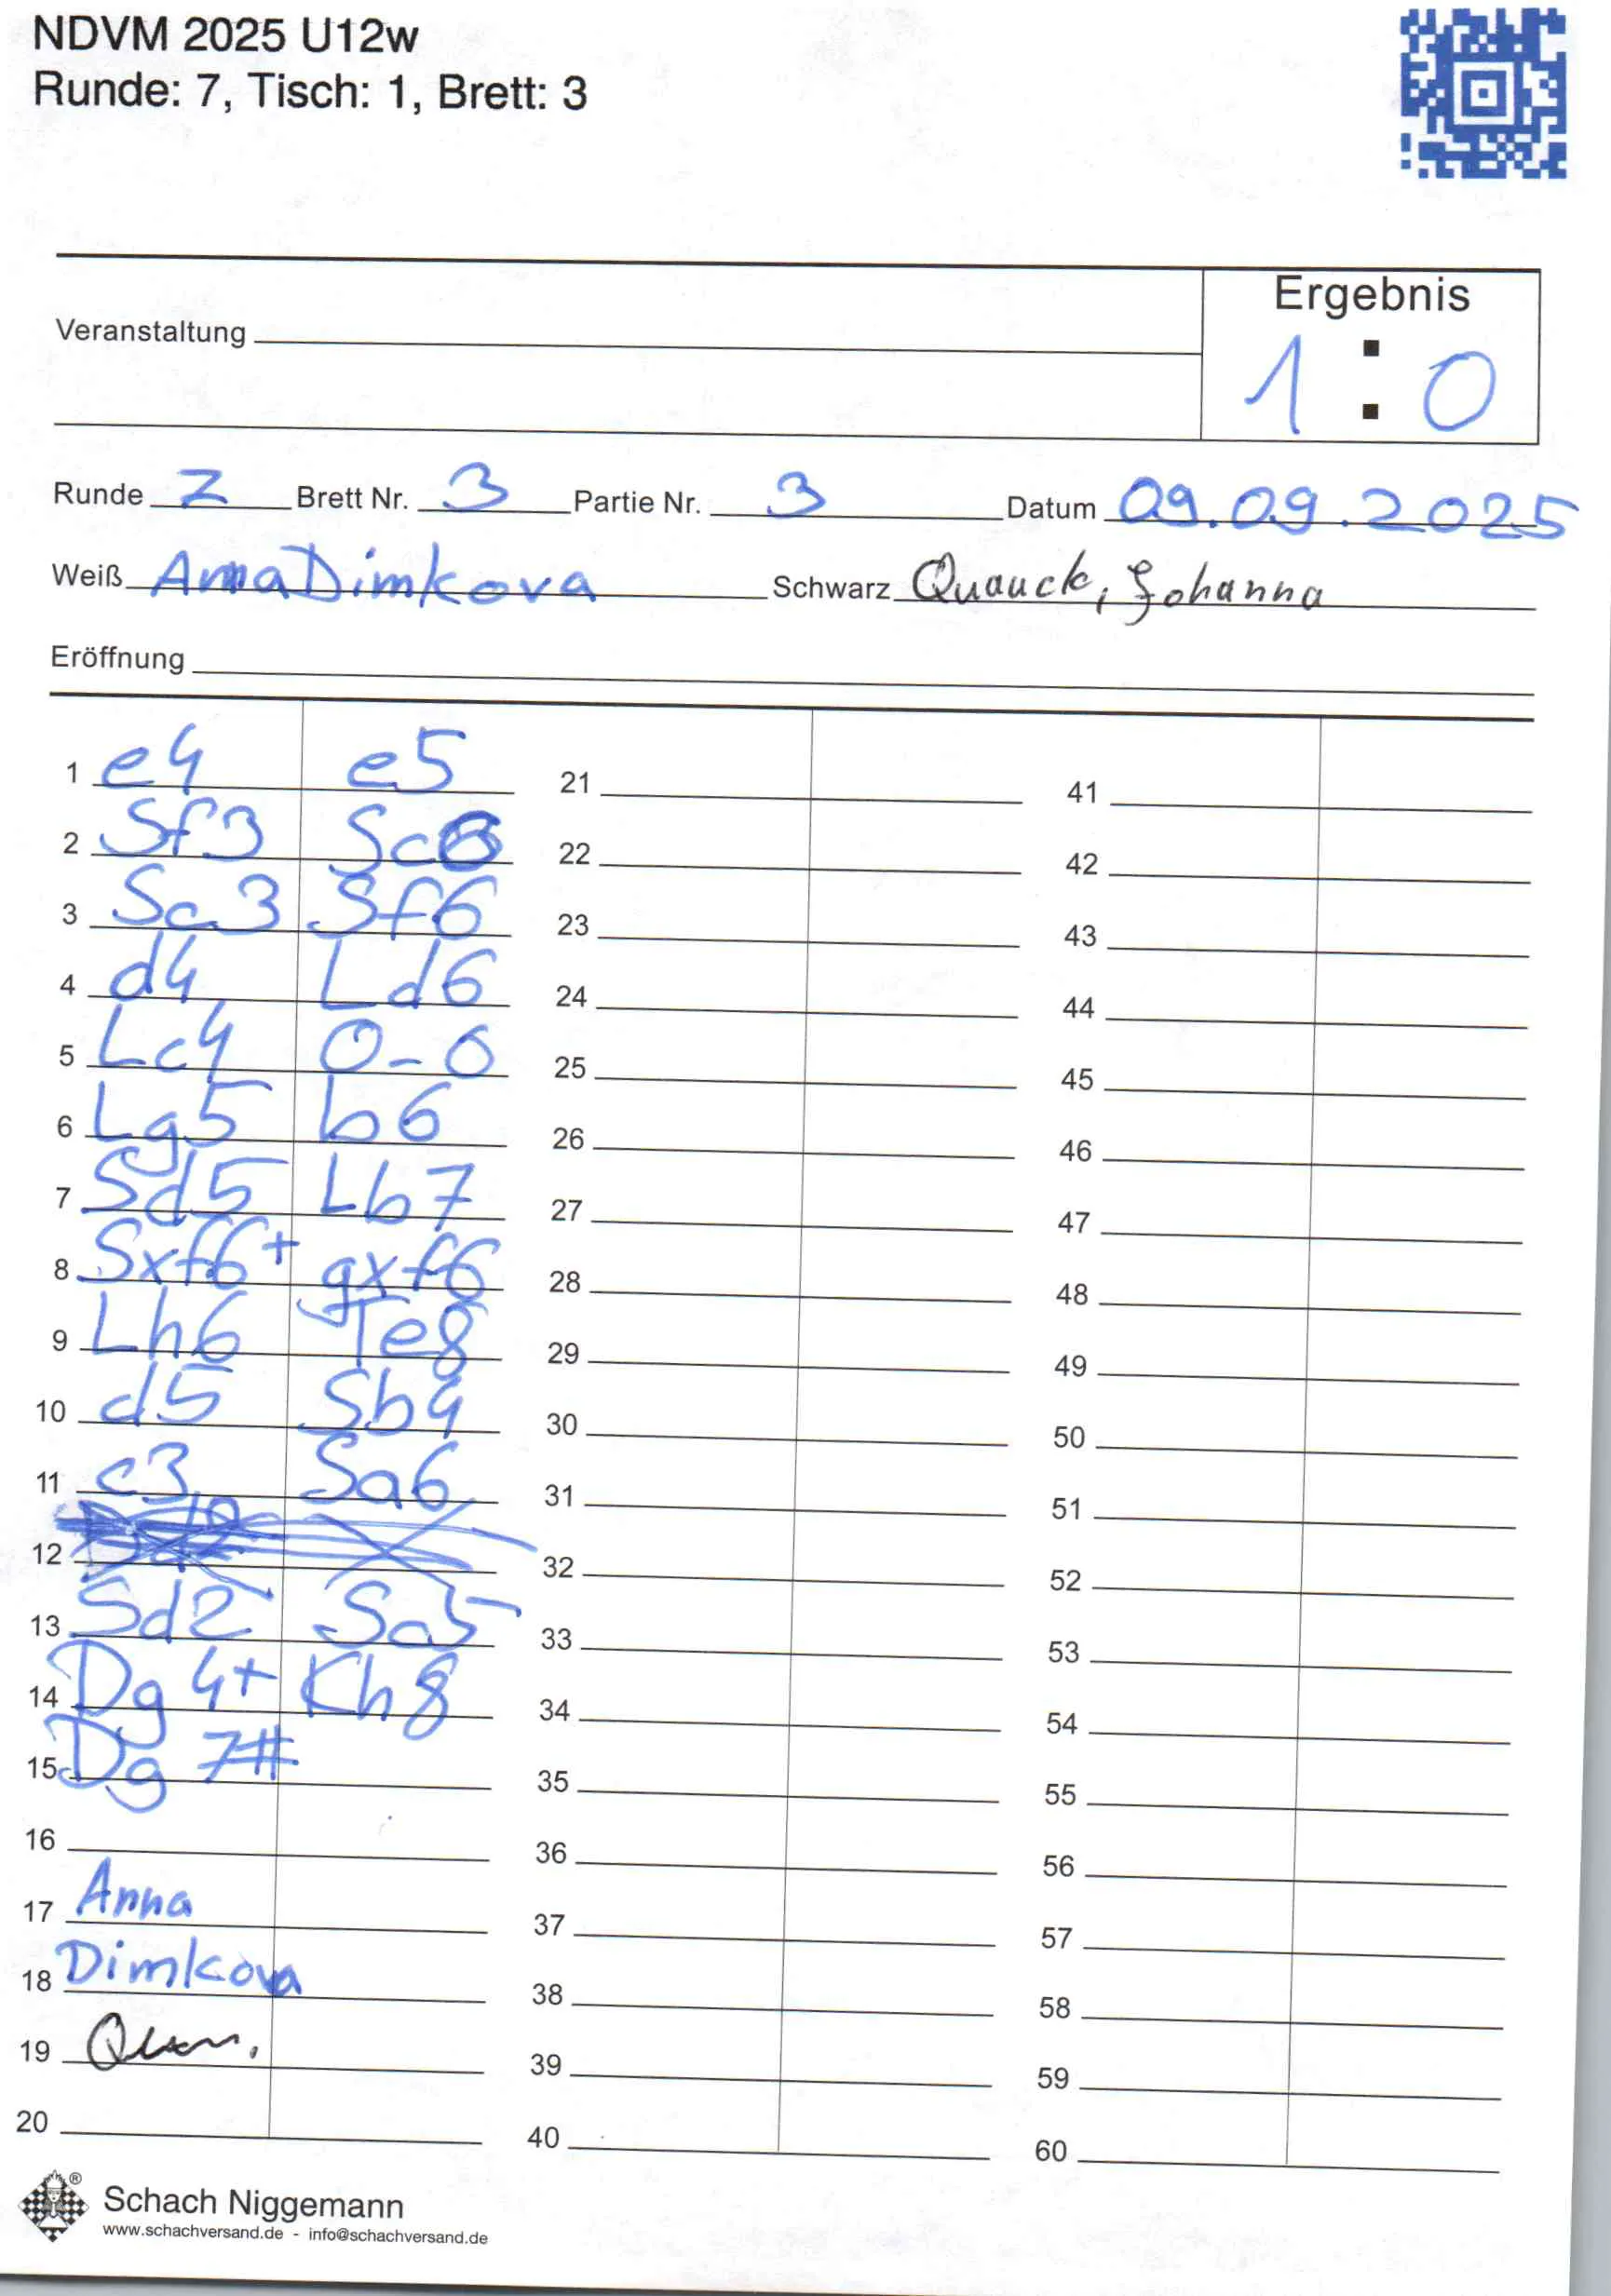 NDVM 2025 U12w
Runde: 7, Tisch: 1, Brett: 3
Ergebnis
1 : 0
Veranstaltung
Runde 7 Brett Nr. 3 Partie Nr. 3 Datum 09.09.2025
Weiß Anna Dimkova Schwarz Quauck, Johanna
Eröffnung
1 e4 e5 21 41
2 Sf3 Sc6 22 42
3 Sc3 Sf6 23 43
4 d4 Ld6 24 44
5 Lc4 0-0 25 45
6 Lg5 b6 26 46
7 Sd5 Lb7 27 47
8 Sxf6+ gxf6 28 48
9 Lh6 Te8 29 49
10 d5 Sb4 30 50
11 c3 Sa6 31 51
12 32 52
13 Sd2 Sc5 33 53
14 Dg4+ Kh8 34 54
15 Dg7# 35 55
16 36 56
17 Anna 37 57
18 Dimkova 38 58
19 39 59
20 40 60
Schach Niggemann
www.schachversand.de - info@schachversand.de